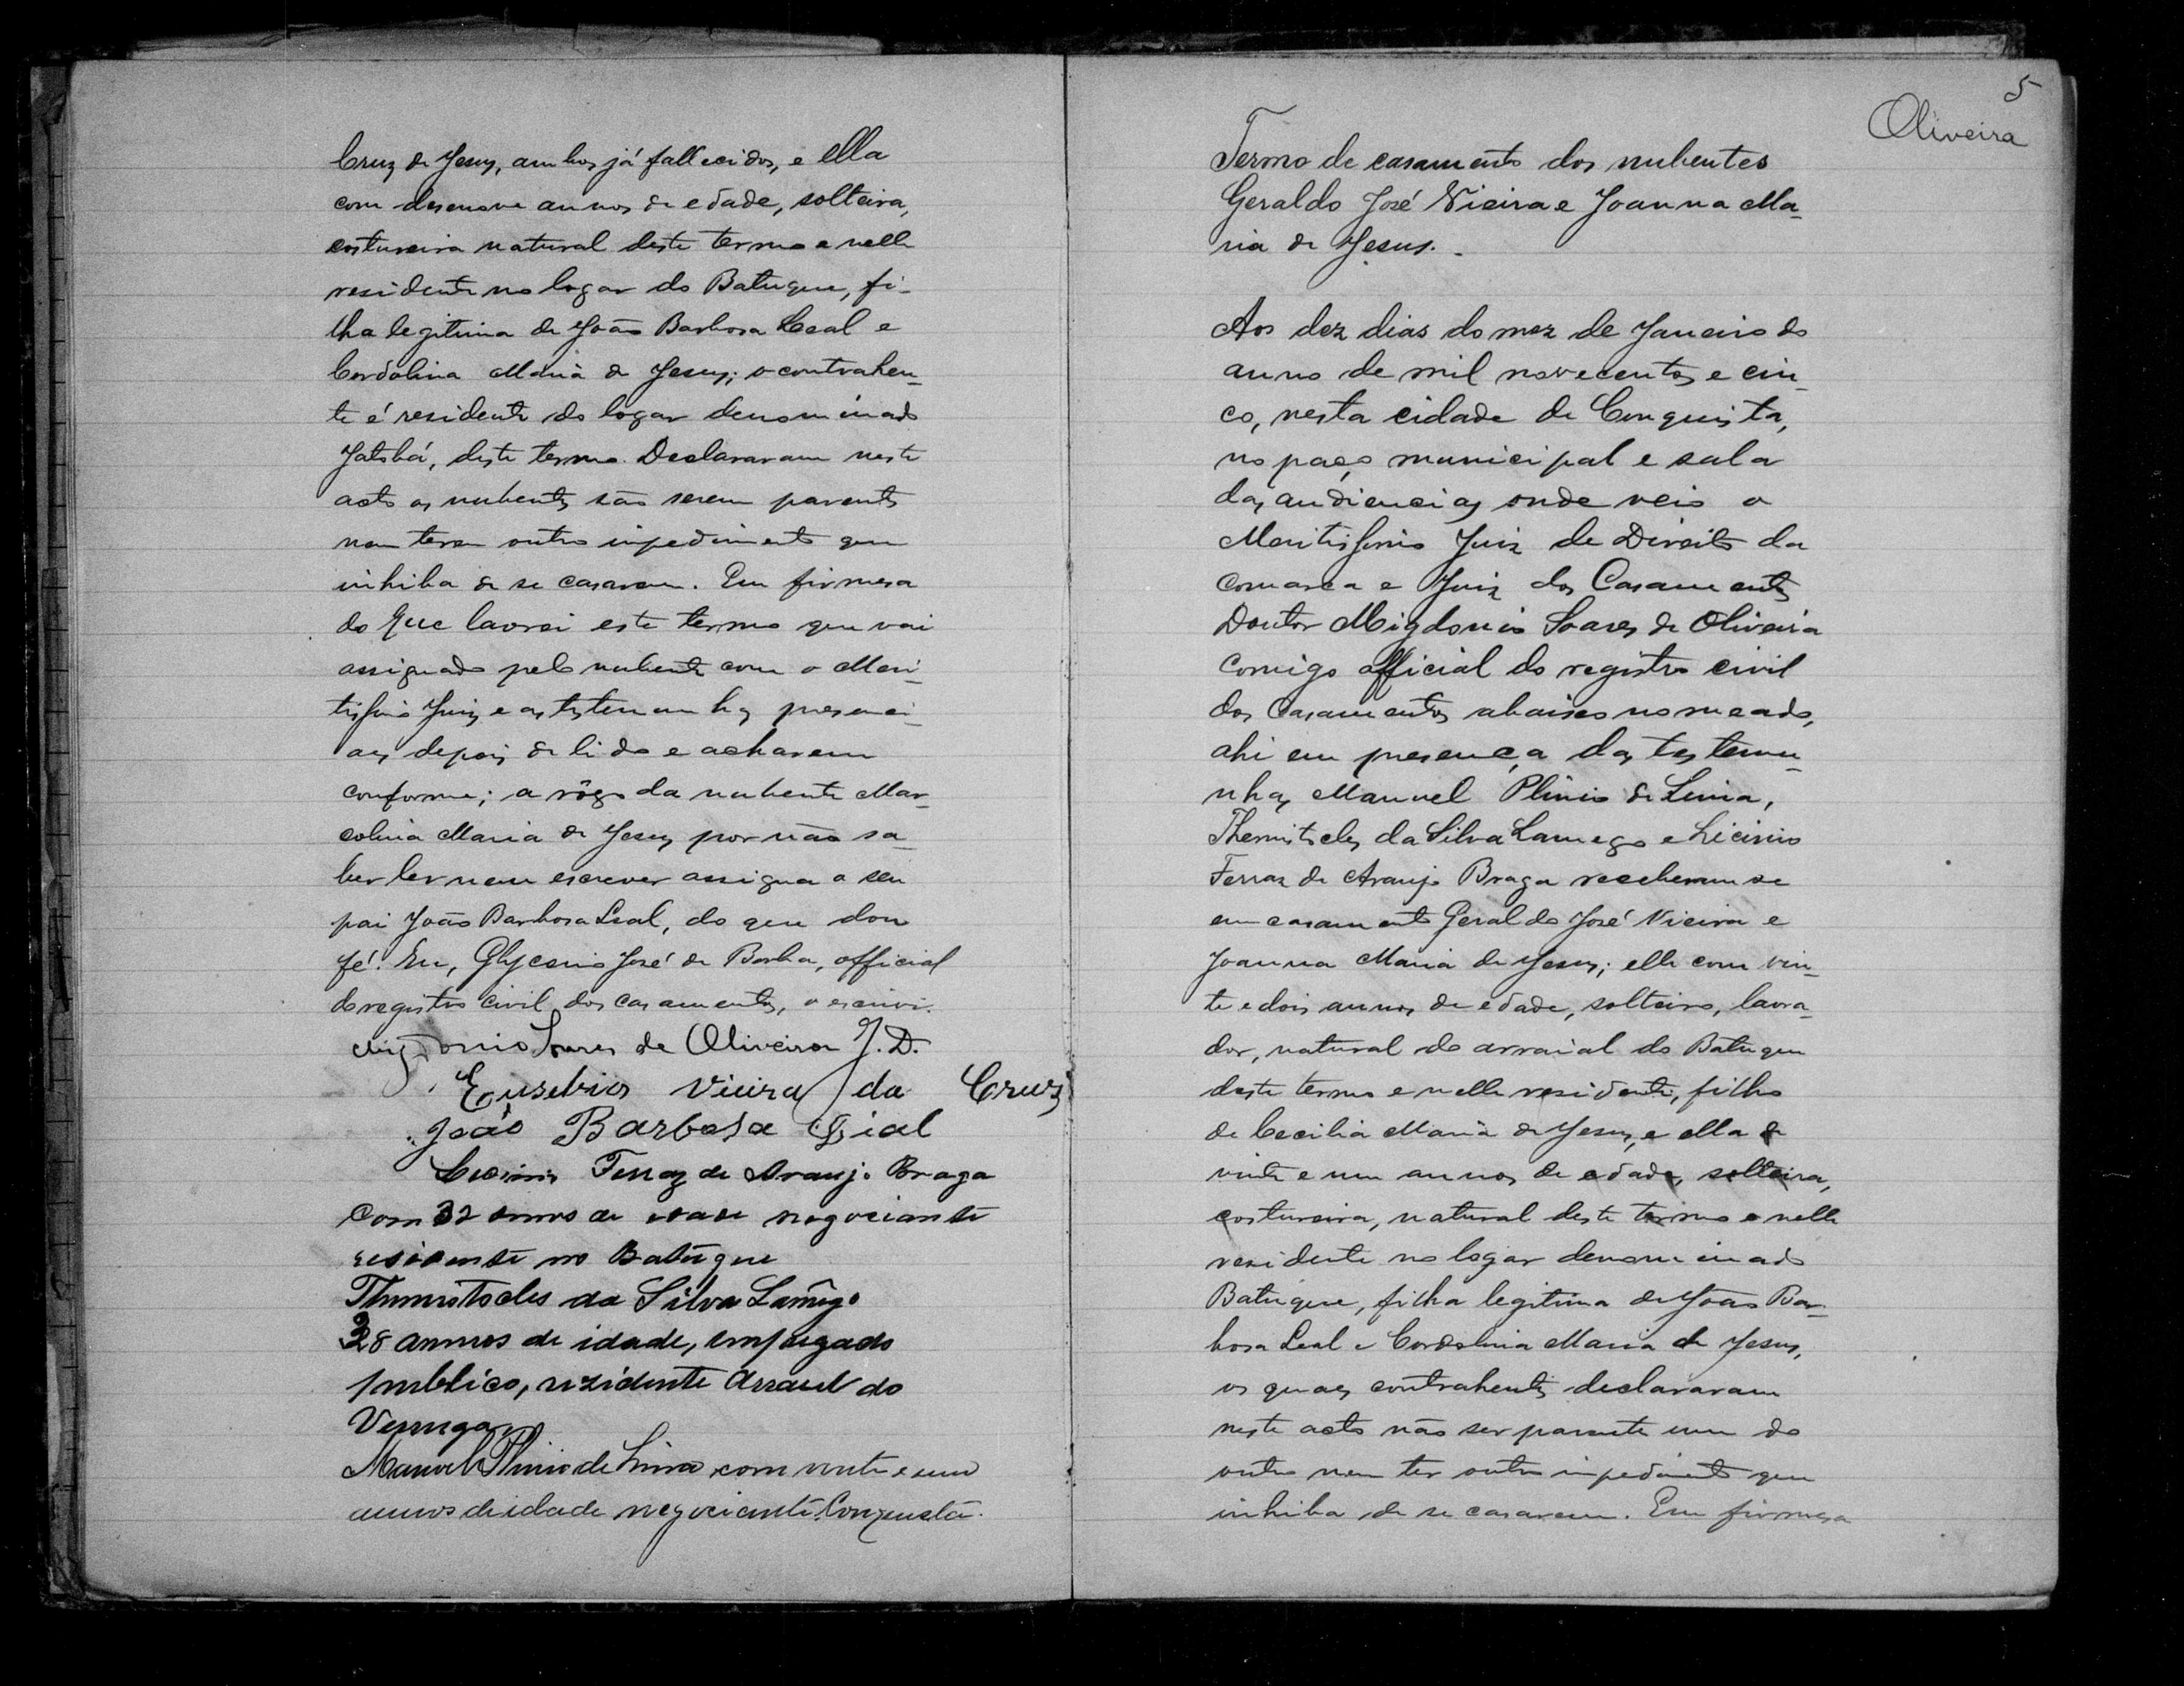 Cruz de Jesus, ambos já fallecidos, e ella
com desenove annos de edade, solteira,
costureira natural deste termo e nelle
residente no logar do Batuque, fi-
lha legitima de João Barbosa Leal e
Cordolina Maria de Jesus; o contrahen-
te é residente do logar denominado
Jatobá, deste termo. Declararam neste
acto os nubentes não serem parentes
nem terem outro impedimento que
inhiba de se casarem. Em firmesa
do que lavrei este termo que vai
assignado pelo nubente com o Meri-
tissimo Juiz e as testemunhas presenci-
aes depois de lido e acharem
conforme; a rôgo da nubente Mar-
colina Maria de Jesus por não sa-
ber ler nem escrever assigna o seu
pai João Barbosa Leal, do que dou
fé. Eu, Glycerio José de Borba, official
do registro civil dos casamentos, o escrivi.
Migdonio Soares de Oliveira J. D.
Eusebio Vieira da Cruz
João Barbosa Lial
Licinio Ferraz de Araujo Braga
com 32 annos de idade negociante
residente no Batuque
Themistocles da Silva Lamêgo
38 annos de idade, empregado
publico, rezidente Arraial do
Verruga
Manoel Plinio de Lima com vinte e um
annos de idade negociante Conquista.
5
Oliveira
Termo de casamento dos nubentes
Geraldo José Vieira e Joanna Ma-
ria de Jesus.
Aos dez dias do mez de Janeiro do
anno de mil novecentos e cin-
co, nesta cidade de Conquista,
no paço municipal e sala
das audiencias onde veio o
Meritissimo Juiz de Direito da
comarca e Juiz dos Casamentos
Doutor Migdonio Soares de Oliveira
comigo official do registro civil
dos Casamentos abaixo nomeado,
ahi em presença das testemu-
nhas Manuel Plinio de Lima,
Themistocles da Silva Lamego e Licinio
Ferraz de Araujo Braga receberam se
em casamento Geraldo José Vieira e
Joanna Maria de Jesus; elle com vin-
te e dois annos de edade, solteiro, lavra-
dor, natural do arraial do Batuque
deste termo e nelle residente, filho
de Cecilia Maria de Jesus, e ella de
vinte e um annos de edade, solteira,
costureira, natural deste termo e nelle
residente no logar denominado
Batuque, filha legitima de João Bar-
bosa Leal e Cordolina Maria de Jesus,
os quaes contrahentes declararam
neste acto não ser parente um do
outro nem ter outro impedimento que
inhiba de se casarem. Em firmesa